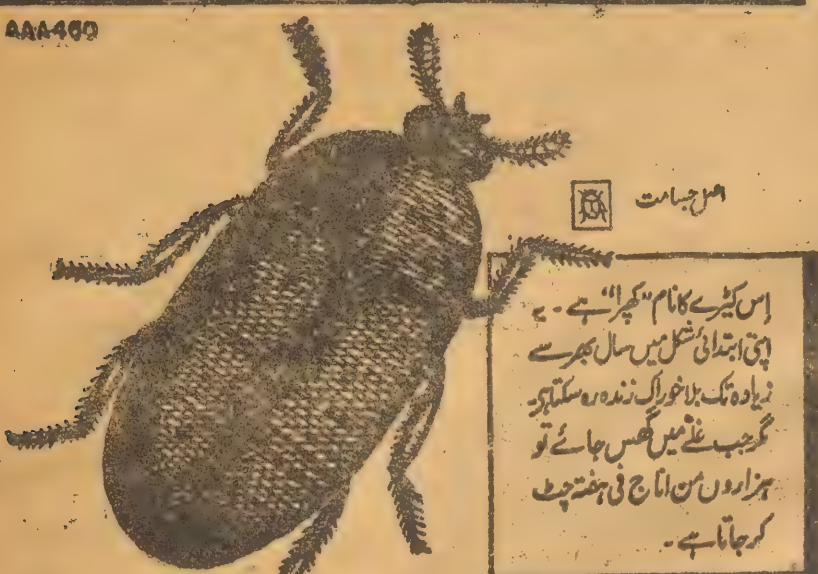 AAA460
اصل جسامت
اِس کیڑے کا نام "کھپرا" ہے ۔ یہ
اپنی ابتدائی شکل میں سال بھر سے
زیادہ تک بلا خوراک زندہ رہ سکتا ہے۔
مگر جب غلّے میں گھس جائے تو
ہزاروں من اناج فی ہفتہ چٹ
کر جاتا ہے ۔